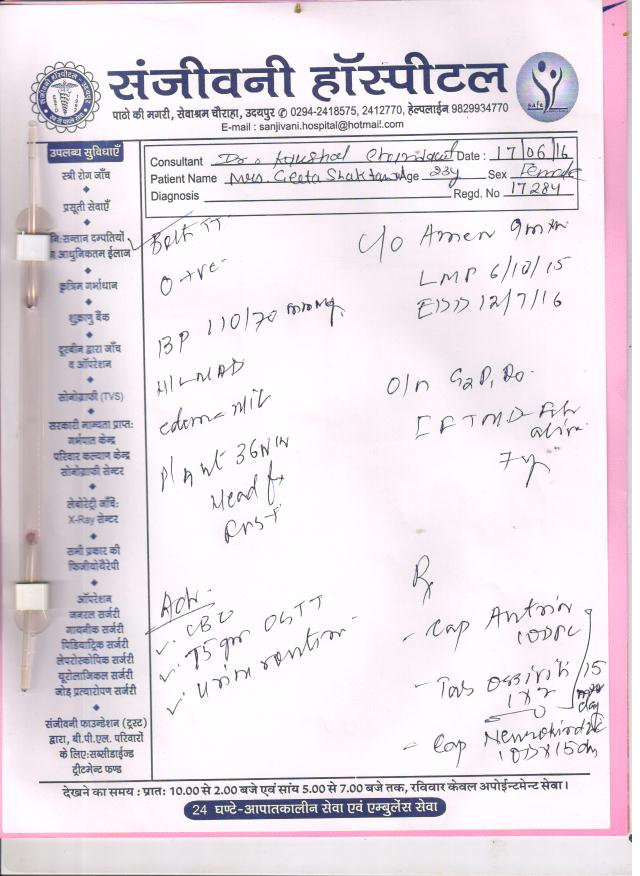 संजीवनी हॉस्पीटल
पाठो की मगरी, सेवाश्रम चौराहा, उदयपुर ✆ 0294-2418575, 2412770, हेल्पलाईन 9829934770
E-mail : sanjivani.hospital@hotmail.com
safe
उपलब्ध सुविधाएँ
स्त्री रोग जाँच
प्रसूती सेवाएँ
नि:सन्तान दम्पतियों
आधुनिकतम ईलाज
कृत्रिम गर्भाधान
शुक्राणु बैंक
दूरबीन द्वारा जाँच
व ऑपरेशन
सोनोग्राफी (TVS)
सरकारी मान्यता प्राप्त:
गर्भपात केन्द्र
परिवार कल्याण केन्द्र
सोनोग्राफी सेन्टर
लेबोरेट्री जाँच:
X-Ray सेन्टर
सभी प्रकार की
फिजीयोथैरेपी
ऑपरेशन
जनरल सर्जरी
गायनीक सर्जरी
पिडियाट्रिक सर्जरी
लेपरोस्कोपिक सर्जरी
यूरोलाजिकल सर्जरी
जोड़ प्रत्यारोपण सर्जरी
संजीवनी फाउन्डेशन (ट्रस्ट)
द्वारा, बी.पी.एल. परिवारों
के लिए:सब्सीडाईज्ड
ट्रीटमेन्ट फण्ड
Consultant Dr. Date : 17/06/16
Patient Name Mrs. Geeta Age 23y Sex Female
Diagnosis Regd. No 17284
Both TT
O +ve
BP 110/70 mmHg
edema
36
Head
C/o Amen 9 mth
LMP 6/10/15
EDD 12/7/16
O/H
FTND
alive
7y
Adv.
CBC
75 gm OGTT
Urin routin
Rx
- Cap
1 OD
- Tab
1 x 2
15
day
- Cap Neurokind
1 OD x 15 days
देखने का समय : प्रात: 10.00 से 2.00 बजे एवं सांय 5.00 से 7.00 बजे तक, रविवार केवल अपोईन्टमेन्ट सेवा।
24 घण्टे-आपातकालीन सेवा एवं एम्बुलेंस सेवा